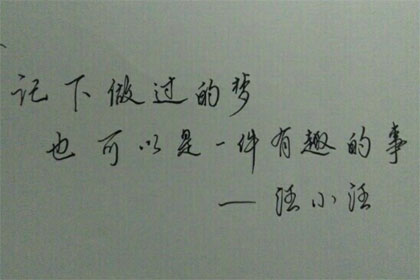 记下做过的梦
也可以是一件有趣的事
—汪小汪